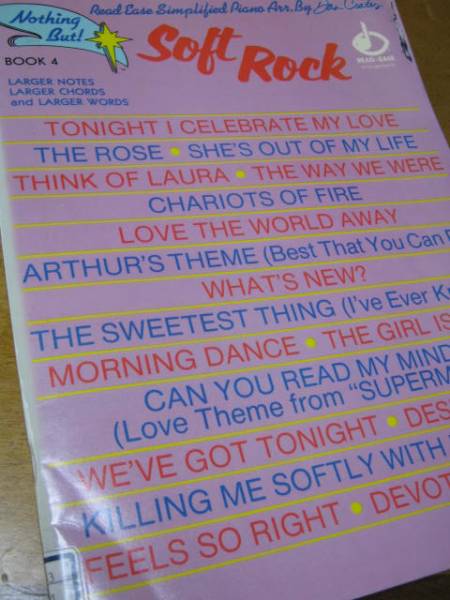 Nothing But!
BOOK 4
LARGER NOTES
LARGER CHORDS
and LARGER WORDS
Read-Ease Simplified Piano Arr. By Dan Coates
Soft Rock
READ-EASE
TONIGHT I CELEBRATE MY LOVE
THE ROSE • SHE'S OUT OF MY LIFE
THINK OF LAURA • THE WAY WE WERE
CHARIOTS OF FIRE
LOVE THE WORLD AWAY
ARTHUR'S THEME (Best That You Can
WHAT'S NEW?
THE SWEETEST THING (I've Ever K
MORNING DANCE • THE GIRL IS
CAN YOU READ MY MIND
(Love Theme from "SUPERM
WE'VE GOT TONIGHT • DES
KILLING ME SOFTLY WITH
FEELS SO RIGHT • DEVOT